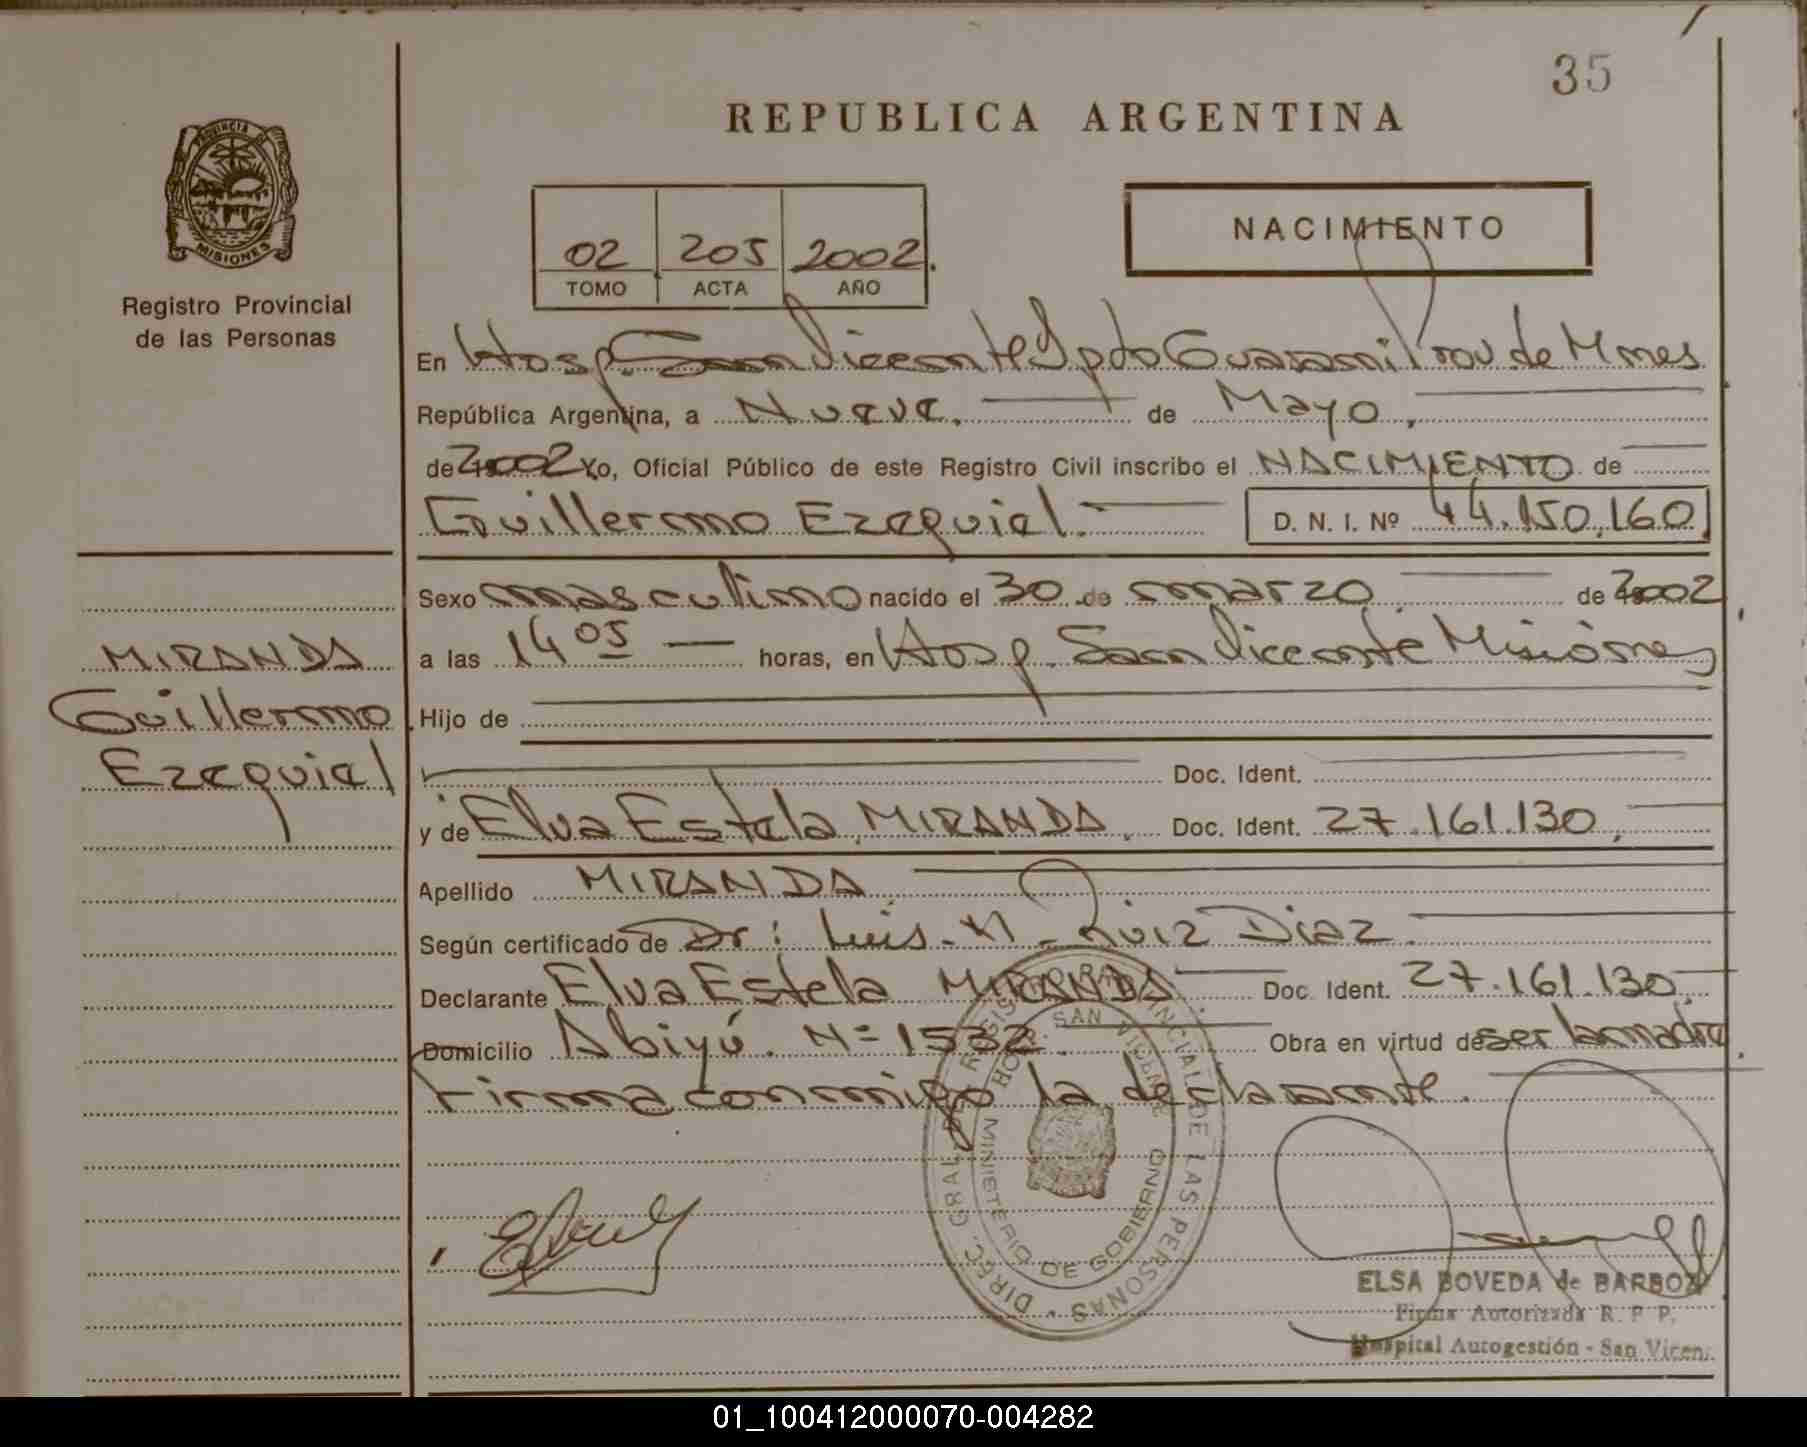 35
REPUBLICA ARGENTINA
PROVINCIA DE
MISIONES
Registro Provincial
de las Personas
02 205 2002.
TOMO ACTA AÑO
NACIMIENTO
En Hosp. San Vicente Dpto Guarani Prov. de Mnes
República Argentina, a Nueve. de Mayo.
de 2002 Yo, Oficial Público de este Registro Civil inscribo el NACIMIENTO de
Guillermo Ezequiel. D. N. I. Nº 44.150.160
Sexo masculino nacido el 30 de marzo de 2002
MIRANDA
Guillermo
Ezequiel
a las 14 05 horas, en Hosp. San Vicente Misiónes
Hijo de
Doc. Ident.
y de Elva Estela MIRANDA. Doc. Ident. 27.161.130.
Apellido MIRANDA
Según certificado de Dr: Luis. N. Ruiz Diaz.
Declarante Elva Estela MIRANDA Doc. Ident. 27.161.130.
Domicilio Abiyú. Nº 1532. Obra en virtud de ser la madre.
Firma conmigo la declarante.
DIREC. GRAL. DEL REGISTRO PROVINCIAL DE LAS PERSONAS
SAN VICENTE
MINISTERIO DE GOBIERNO
ELSA BOVEDA de BARBOZA
Firma Autorizada R. P. P.
Hospital Autogestión - San Vicen.
01_100412000070-004282